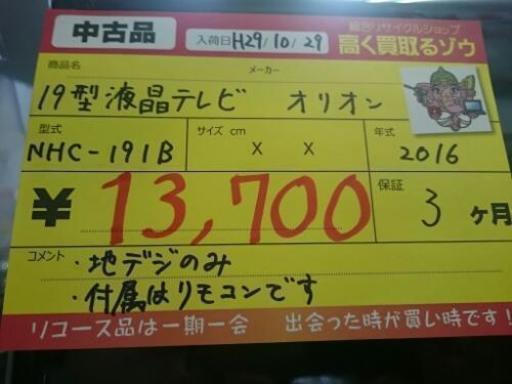 中古品 入荷日 H29/10/29 総合リサイクルショップ
高く買取るゾウ
商品名 メーカー
19型液晶テレビ オリオン
型式 サイズ cm 年式
NHC-191B X X 2016
¥13,700 保証 3ヶ月
コメント ・地デジのみ
・付属はリモコンです
リユース品は一期一会 出会った時が買い時です!